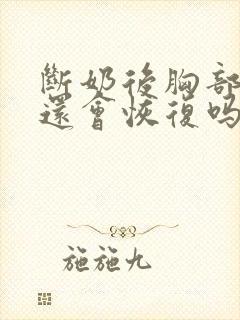 斷奶後胸部
還會恢復吗
施施九